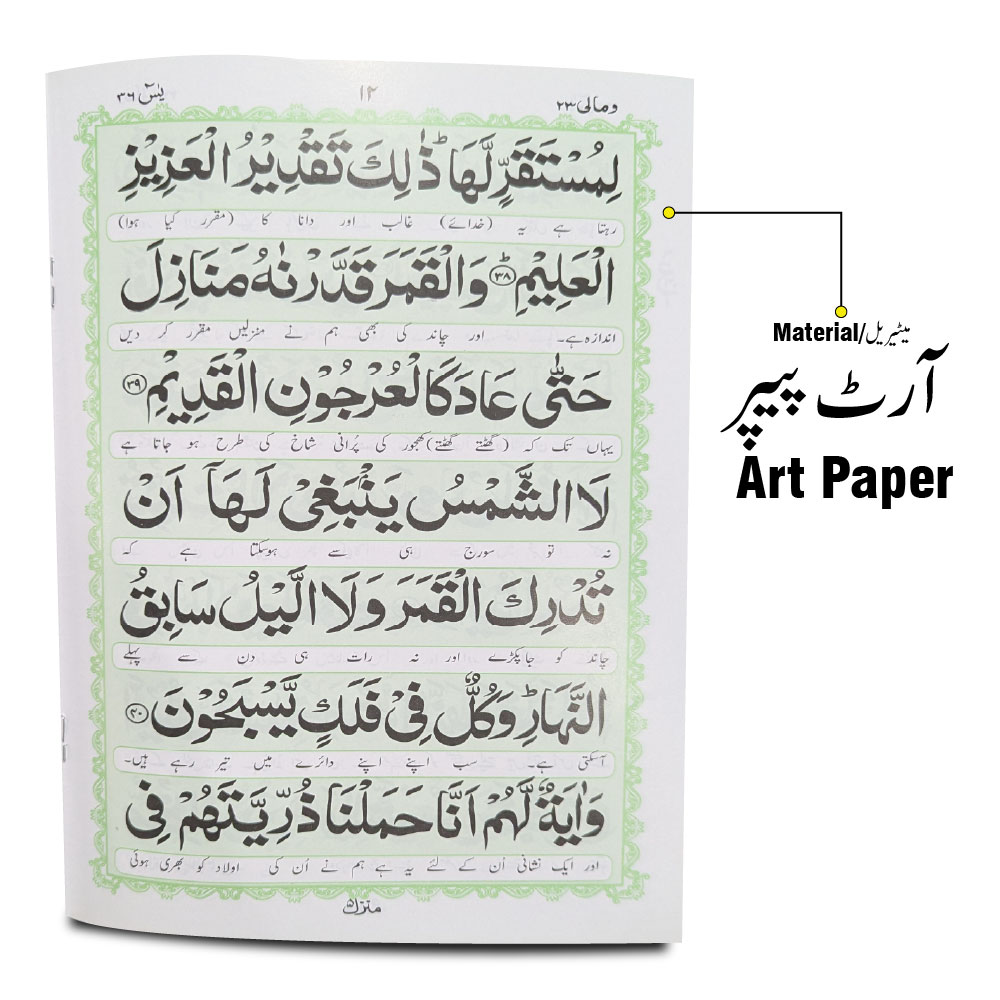 ومالی ۲۳
۱۲
یٰسٓ ۳۶
لِمُسْتَقَرٍّ لَّهَا ؕ ذٰلِكَ تَقْدِيْرُ الْعَزِيْزِ
رہتا ہے یہ (خدائے) غالب اور دانا کا (مقرر کیا ہوا)
الْعَلِيْمِ ؕ ۳۸ وَالْقَمَرَ قَدَّرْنٰهُ مَنَازِلَ
اندازہ ہے۔ اور چاند کی بھی ہم نے منزلیں مقرر کر دیں
حَتّٰى عَادَ كَالْعُرْجُوْنِ الْقَدِيْمِ ۳۹
یہاں تک کہ (گھٹتے گھٹتے) کھجور کی پُرانی شاخ کی طرح ہو جاتا ہے
لَا الشَّمْسُ يَنْۢبَغِىْ لَهَاۤ اَنْ
نہ تو سورج ہی سے ہوسکتا ہے کہ
تُدْرِكَ الْقَمَرَ وَلَا الَّيْلُ سَابِقُ
چاند کو جاپکڑے اور نہ رات ہی دن سے پہلے
النَّهَارِ ؕ وَكُلٌّ فِىْ فَلَكٍ يَّسْبَحُوْنَ ۴۰
آسکتی ہے۔ سب اپنے اپنے دائرے میں تیر رہے ہیں۔
وَاٰيَةٌ لَّهُمْ اَنَّا حَمَلْنَا ذُرِّيَّتَهُمْ فِى
اور ایک نشانی اُن کے لئے یہ ہے ہم نے اُن کی اولاد کو بھری ہوئی
منزل ۵
Material/میٹیریل
آرٹ پیپر
Art Paper